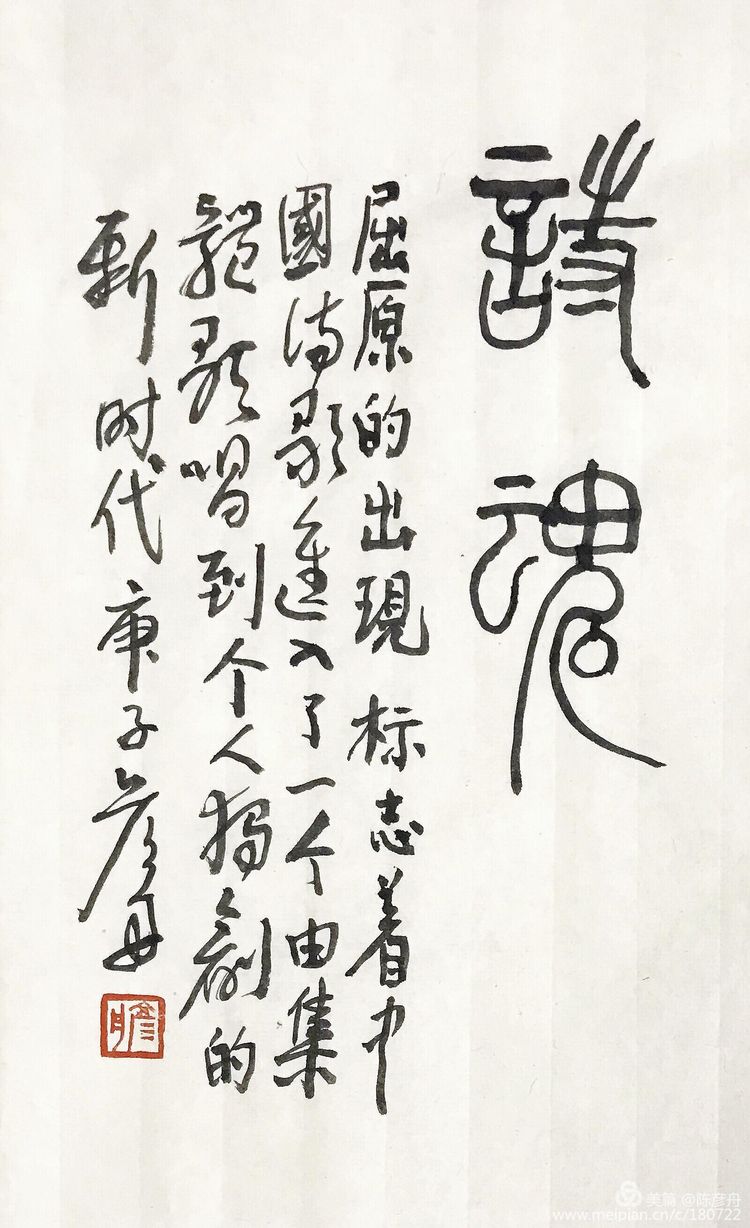 詩魂
屈原的出現 标志着中
國诗歌進入了一个由集
體歌唱到个人獨創的
新时代 庚子彦舟
美篇 @陈彦舟
www.meipian.cn/c/180722